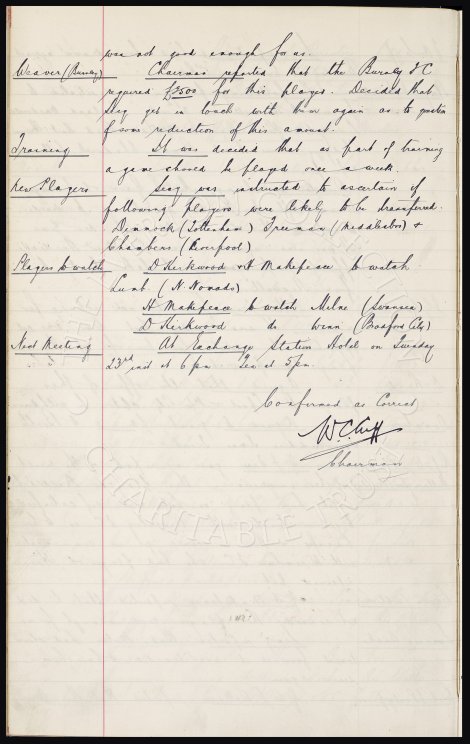 was not good enough for us.
Weaver (Burnley) Chairman reported that the Burnley F C
required £3500 for this player. Decided that
Secy get in touch with them again as to question
of some reduction of this amount.
Training It was decided that as part of training
a game should be played once a week.
New Players Secy was instructed to ascertain if
following players were likely to be transferred.
Dimmock (Tottenham) Freeman (Middlesbro) &
Chambers (Liverpool)
Players to watch D Kirkwood & H Makepeace to watch
Lunt (N. Nomads)
H Makepeace to watch Milne (Swansea)
D Kirkwood do Wann (Bradford City)
Next Meeting At Exchange Station Hotel on Tuesday
23rd inst at 6 pm Tea at 5 pm.
Confirmed as Correct
W.C. Cuff
Chairman
CHARITABLE TRUST